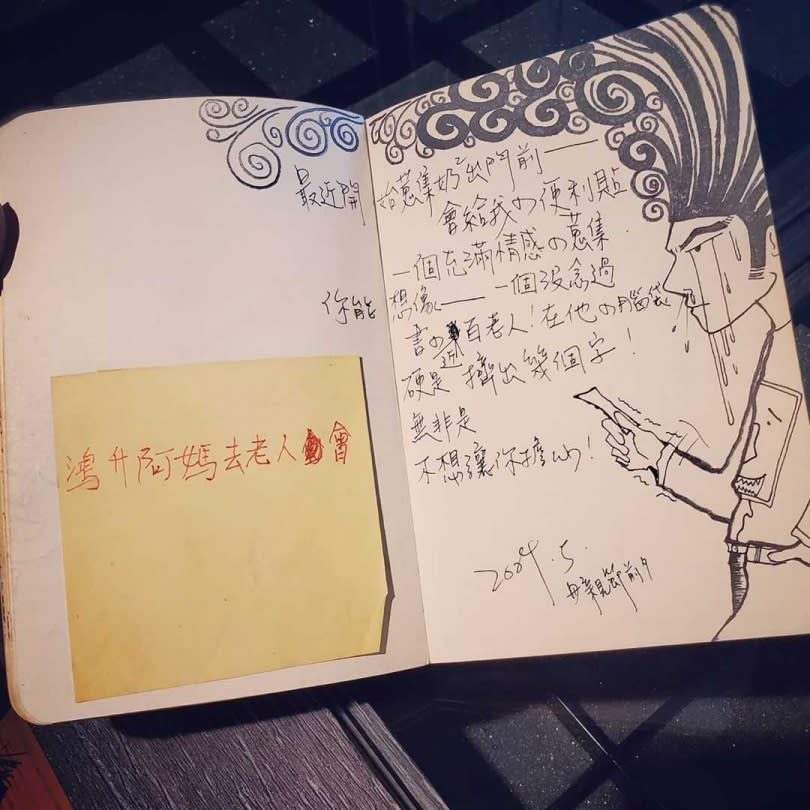 最近開始蒐集奶²出門前——
會給我の便利貼
一個充滿情感の蒐集.
你能想像—— 一個沒念過
書の近百老人!在他の腦袋
硬是擠出幾個字!
無非是
不想讓你擔心!
2004.5.
母親節前夕
鴻升阿媽去老人會